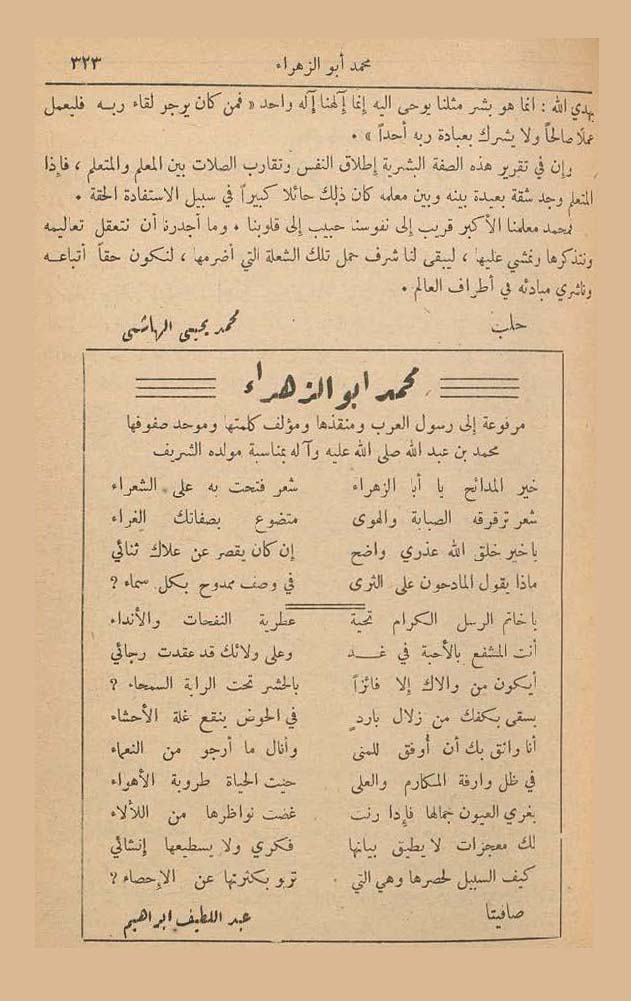 محمد أبو الزهراء ٣٢٣
يهدي الله : انما هو بشر مثلنا يوحى اليه إنما إلهنا إله واحد « فمن كان يرجو لقاء ربه فليعمل
عملا صالحاً ولا يشرك بعبادة ربه أحداً » .
وإن في تقرير هذه الصفة البشرية إطلاق النفس وتقارب الصلات بين المعلم والمتعلم ، فاذا
المتعلم وجد شقة بعيدة بينه وبين معلمه كان ذلك حائلا كبيراً في سبيل الاستفادة الحقة .
فمحمد معلمنا الأكبر قريب إلى نفوسنا حبيب إلى قلوبنا . وما أجدرنا أن نتعقل تعاليمه
ونتذكرها ونمشي عليها ، ليبقى لنا شرف حمل تلك الشعلة التي أضرمها ، لنكون حقاً أتباعه
وناشري مبادئه في أطراف العالم .
حلب محمد يحيى الهاشمي
محمد ابو الزهراء
مرفوعة إلى رسول العرب ومنقذها ومؤلف كلمتها وموحد صفوفها
محمد بن عبد الله صلى الله عليه وآله بمناسبة مولده الشريف
خير المدائح يا أبا الزهراء شعر فتحت به على الشعراء
شعر ترقرقه الصبابة والهوى متضوع بصفاتك الغراء
ياخير خلق الله عذري واضح إن كان يقصر عن علاك ثنائي
ماذا يقول المادحون على الثرى في وصف ممدوح بكل سماء ؟
ياخاتم الرسل الكرام تحية عطرية النفحات والأنداء
أنت المشفع بالأحبة في غد وعلى ولائك قد عقدت رجائي
أيكون من والاك إلا فائزاً بالحشر تحت الراية السمحاء ؟
يسقى بكفك من زلال بارد في الحوض ينقع غلة الأحشاء
أنا واثق بك أن أُوفق للمنى وأنال ما أرجو من النعماء
في ظل وارفة المكارم والعلى حيث الحياة طروبة الأهواء
يغري العيون جمالها فإذا رنت غضت نواظرها من اللألاء
لك معجزات لا يطيق بيانها فكري ولا يسطيعها إنشائي
كيف السبيل لحصرها وهي التي تربو بكثرتها عن الإحصاء ؟
صافيتا عبد اللطيف ابراهيم